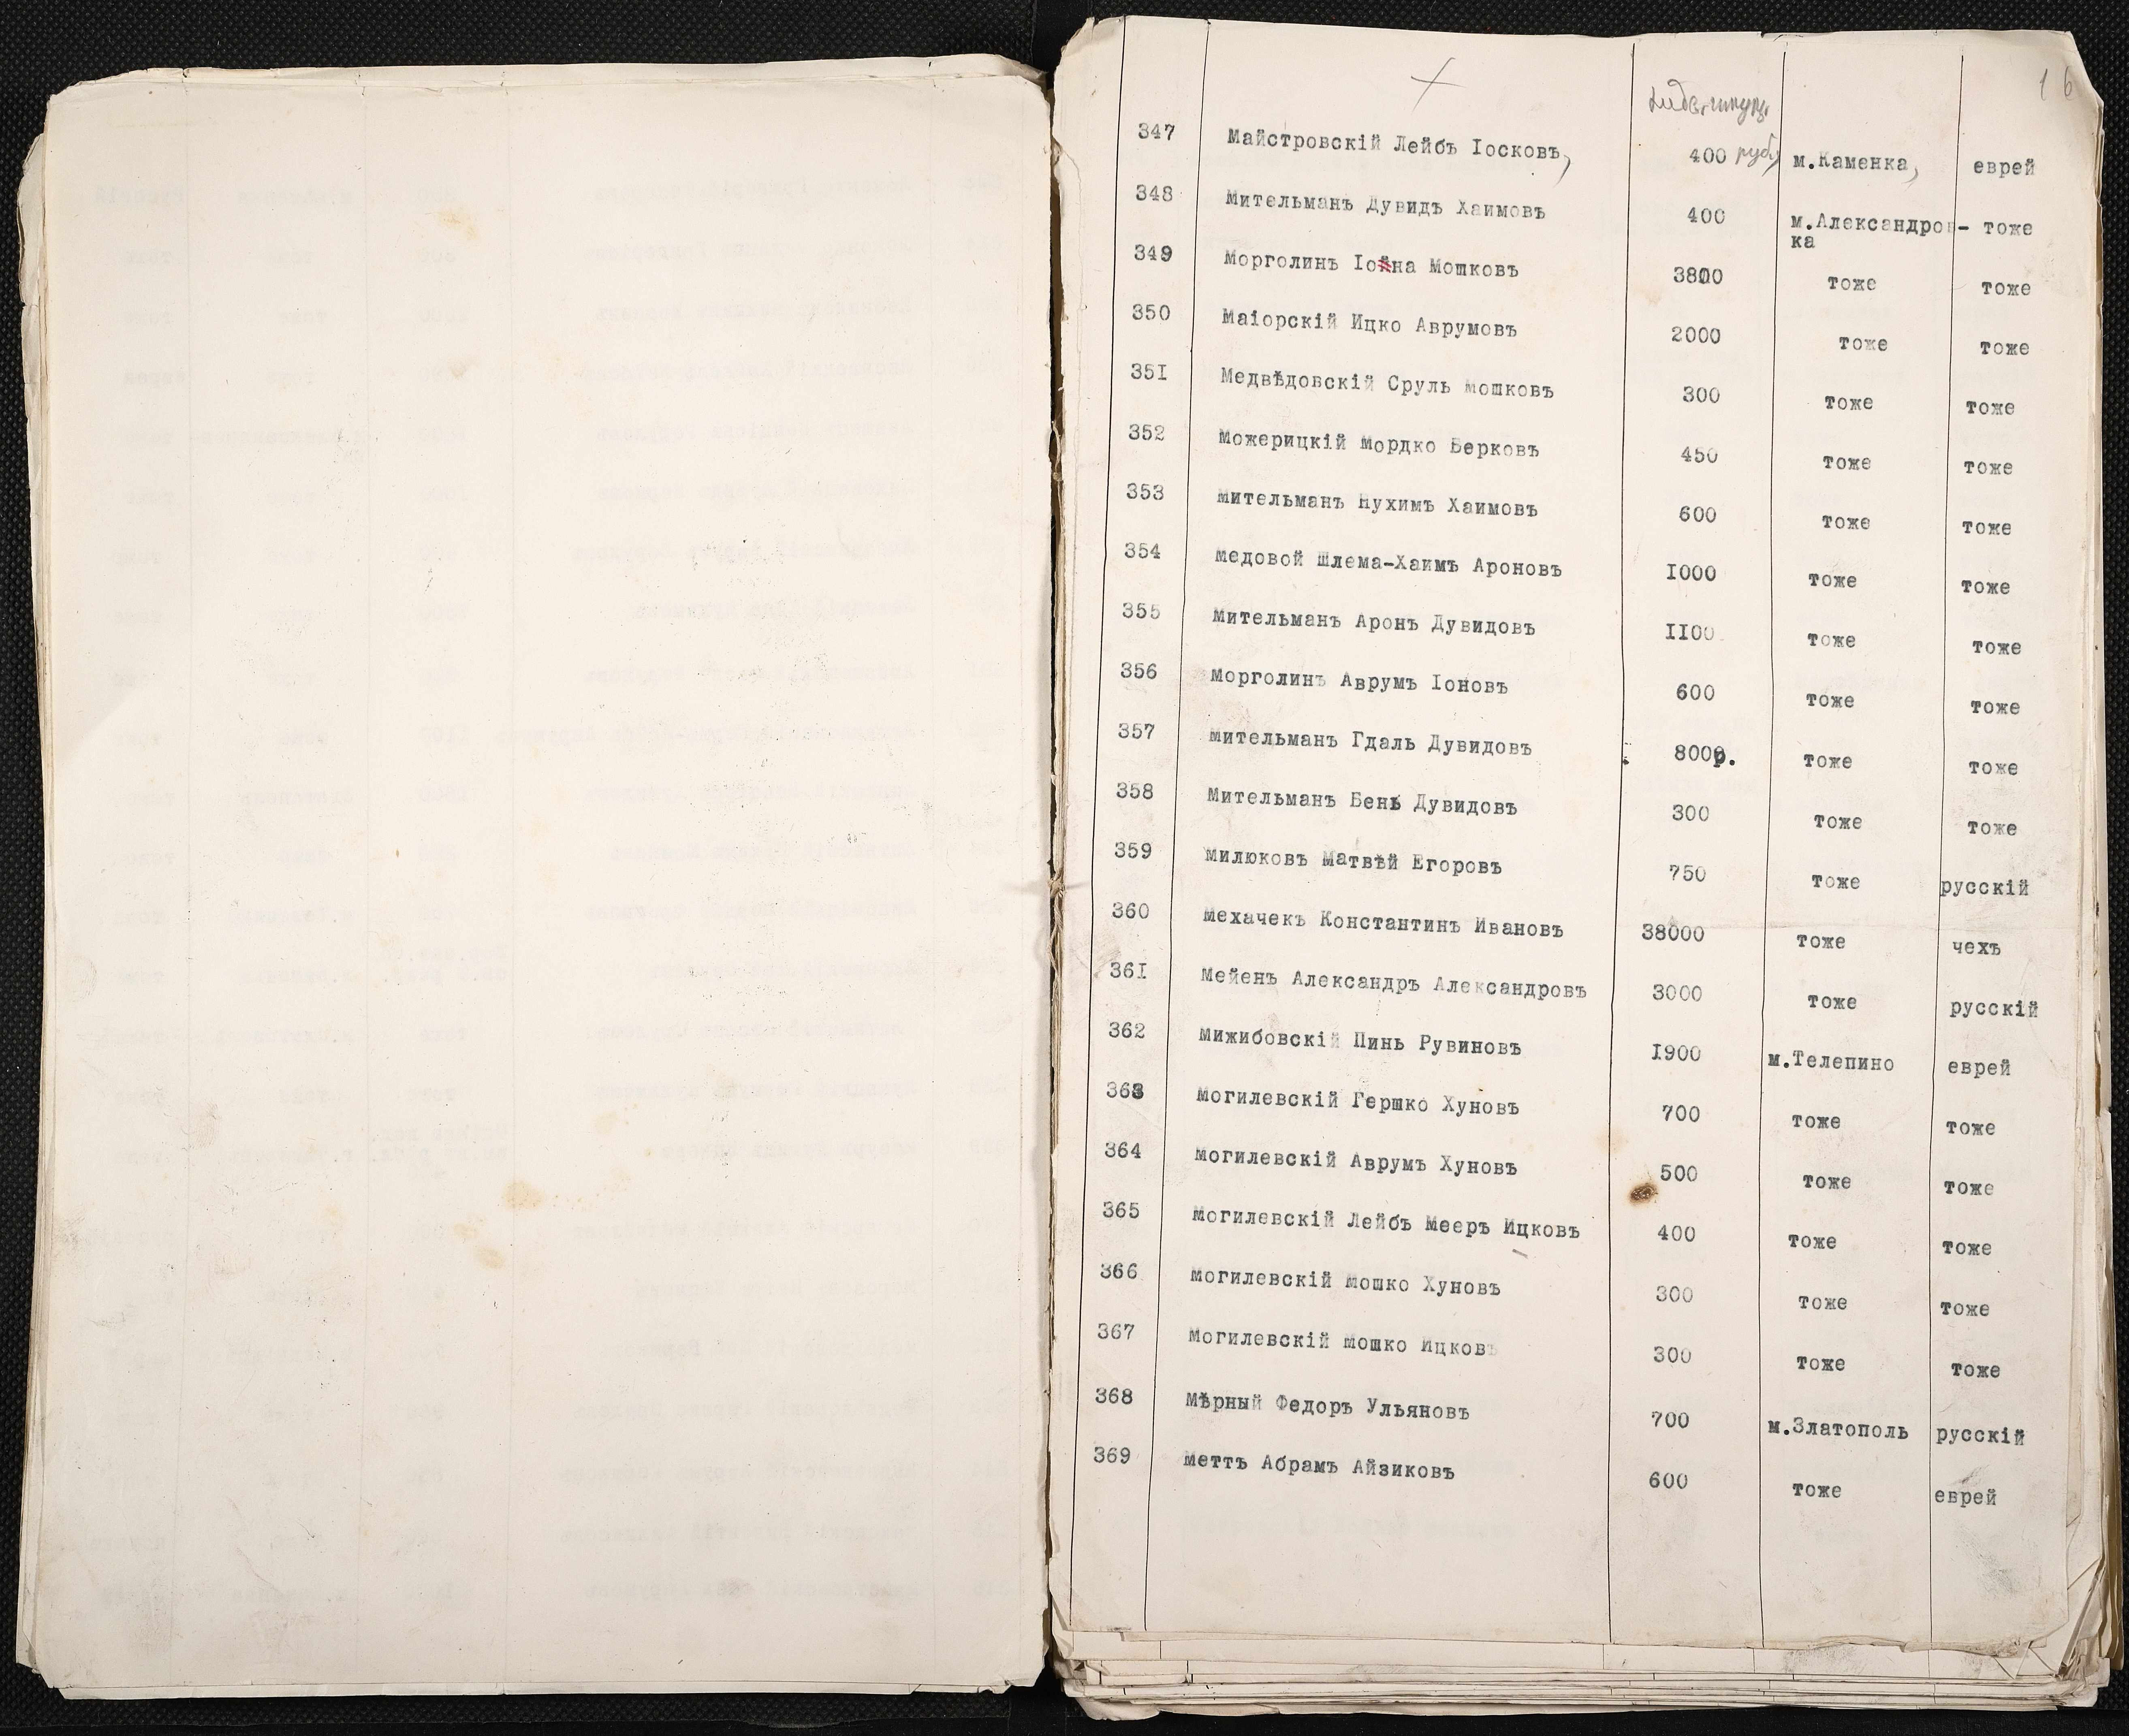 16
347 Майстровскій Лейбъ Іосковъ, 400 руб, м.Каменка, еврей
348 Мительманъ Дувидъ Хаимовъ 400 м.Александров- тоже
ка
349 Морголинъ Іона Мошковъ 3800 тоже тоже
350 Маіорскій Ицко Аврумовъ 2000 тоже тоже
351 Медвѣдовскій Сруль Мошковъ 300 тоже тоже
352 Можерицкій Мордко Берковъ 450 тоже тоже
353 Мительманъ Нухимъ Хаимовъ 600 тоже тоже
354 Медовой Шлема-Хаимъ Ароновъ 1000 тоже тоже
355 Мительманъ Аронъ Дувидовъ 1100 тоже тоже
356 Морголинъ Аврумъ Іоновъ 600 тоже тоже
357 Мительманъ Гдаль Дувидовъ 8000р. тоже тоже
358 Мительманъ Бень Дувидовъ 300 тоже тоже
359 Милюковъ Матвѣй Егоровъ 750 тоже русскій
360 Мехачекъ Константинъ Ивановъ 38000 тоже чехъ
361 Мейенъ Александръ Александровъ 3000 тоже русскій
362 Мижибовскій Пинь Рувиновъ 1900 м.Телепино еврей
363 Могилевскій Гершко Хуновъ 700 тоже тоже
364 Могилевскій Аврумъ Хуновъ 500 тоже тоже
365 Могилевскій Лейбъ Мееръ Ицковъ 400 тоже тоже
366 Могилевскій Мошко Хуновъ 300 тоже тоже
367 Могилевскій Мошко Ицковъ 300 тоже тоже
368 Мѣрный Федоръ Ульяновъ 700 м.Златополь русскій
369 Меттъ Абрамъ Айзиковъ 600 тоже еврей